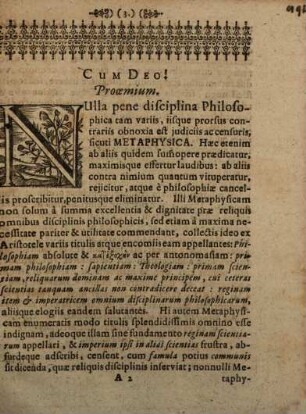 (3.)
CUM DEO!
Proœmium.
NUlla pene disciplina Philoso-
phica tam variis, iisque prorsus con-
trariis obnoxia est judiciis ac censuris,
sicuti METAPHYSICA. Hæc etenim
ab aliis quidem suspiciose prædicatur,
maximisque effertur laudibus: ab aliis
contra nimium quantum vituperatur,
rejicitur, atque è philosophiæ cancel-
lis proscribitur, penitusque eliminatur. Illi Metaphysicam
non solum à summa excellentia & dignitate præ reliquis
omnibus disciplinis philosophicis, sed etiam à maxima ne-
cessitate pariter & utilitate commendant, collectis ideo ex
Aristotele variis titulis atque encomiis eam appellantes: Phi-
losophiam absolute & κατ' ἐξοχὴν ac per antonomasiam: pri-
mam philosophiam: sapientiam: Theologiam: primam scien-
tiam, reliquarum dominam ac maxime principem, cui ceteras
scientias tanquam ancillas non contradicere deceat: reginam
item & imperatricem omnium disciplinarum philosophicarum,
aliisque elogiis eandem salutantes. Hi autem Metaphysi-
cam enumeratis modo titulis splendidissimis omnino esse
indignam, adeoque illam sine fundamento reginam scientia-
rum appellari, & imperium ipsi in alias scientias frustra, ab-
surdeque adscribi, censent, cum famula potius communis
sit dicenda, quæ reliquis disciplinis inserviat; nonnulli Me-
A 2 taphy-